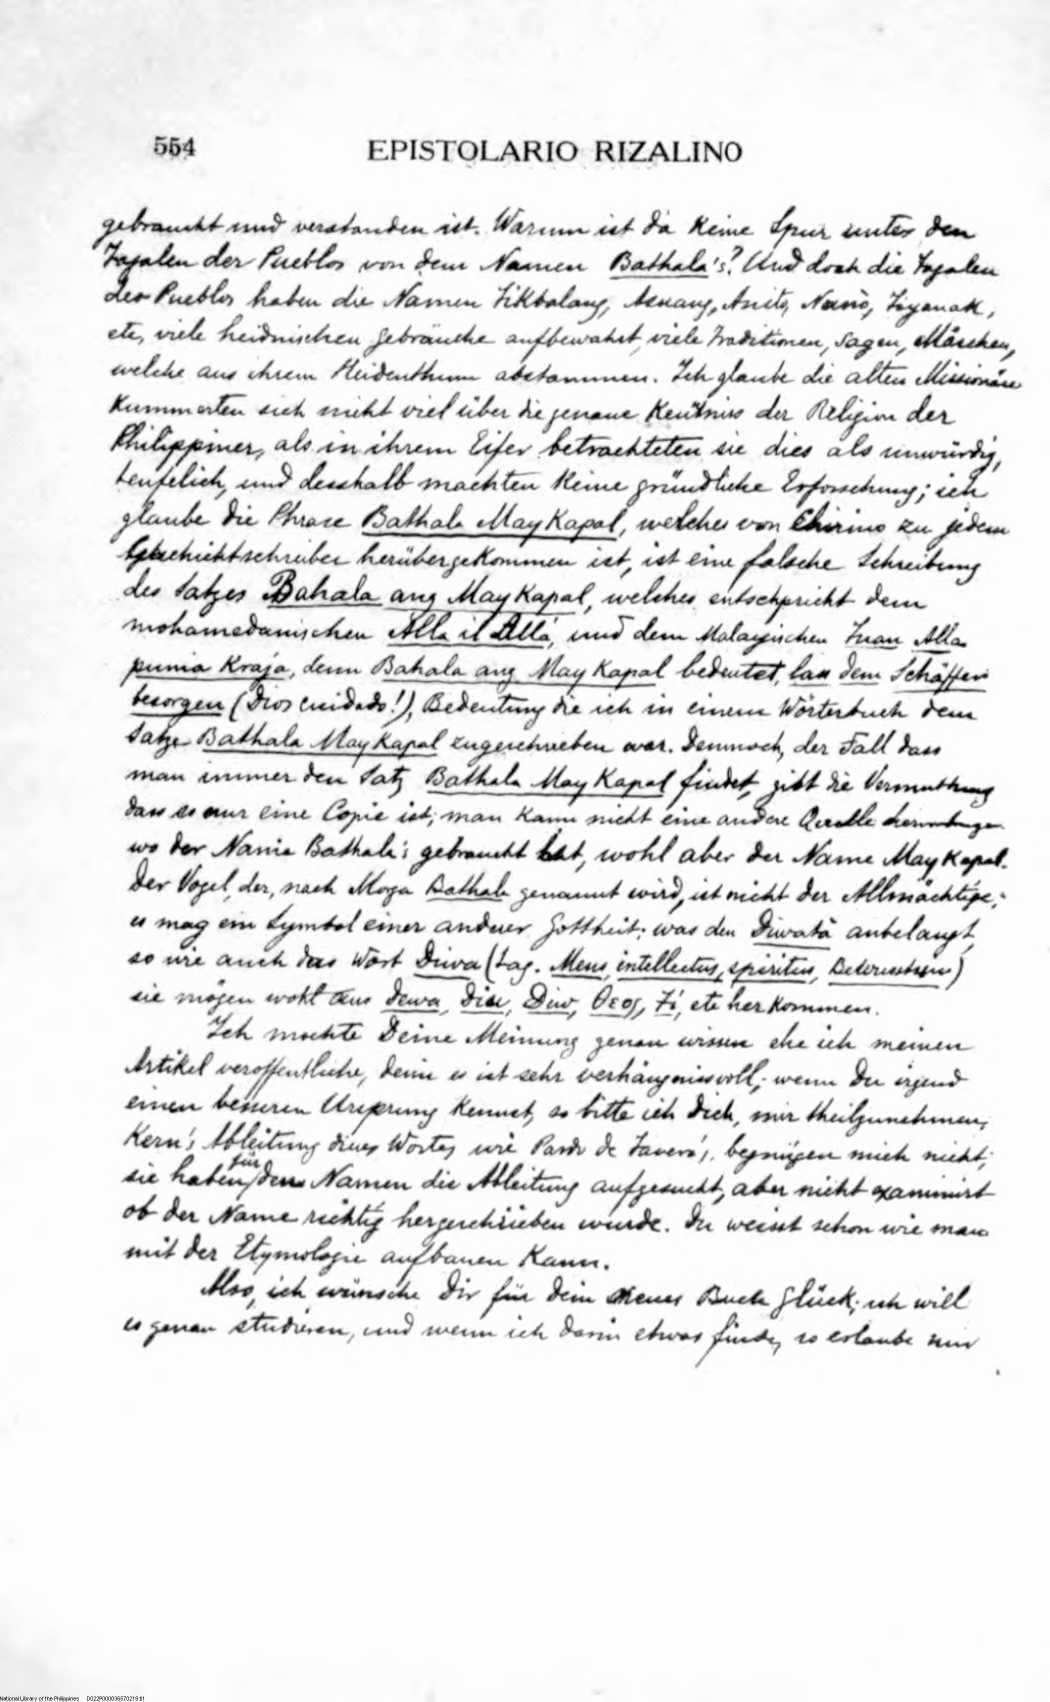 554 EPISTOLARIO RIZALINO
gebraucht und verstanden ist. Warum ist da keine Spur unter den
Tagalen der Pueblos von dem Namen Bathala's? Und doch die Tagalen
der Pueblos haben die Namen Tikbalang, Asuang, Anito, Nuno, Tiyanak,
etc, viele heidnischen Gebräuche aufbewahrt, viele Traditionen, Sagen, Märchen,
welche aus ihrem Heidenthum abstammen. Ich glaube die alten Missionäre
kummerten sich nicht viel über die genaue Kentniss der Religion der
Philippiner, als in ihrem Eifer betrachteten sie dies als unwürdig,
teufelich, und desshalb machten keine gründliche Erforschung; ich
glaube die Phrase Bathala May Kapal, welches von Chirino zu jedem
Geschichtschreiber herübergekommen ist, ist eine falsche Schreibung
des Satzes Bahala ang May Kapal, welches entschpricht dem
mohamedanischen Alla il Allá, und dem Malayischen Tuan Alla
punia Kraja, denn Bahala ang May Kapal bedeutet, lass dem Schäffer
besorgen (Dios cuidado!), Bedeutung die ich in einem Wörterbuch dem
Satze Bathala May Kapal zugeschrieben war. Dennoch, der Fall dass
man immer den Satz Bathala May Kapal findet, gibt die Vermuthung
dass es nur eine Copie ist; man kann nicht eine andere Quelle
wo der Name Bathala's gebraucht hat, wohl aber der Name May Kapal.
Der Vogel, der, nach Moga Bathala genannt wird, ist nicht der Allmächtige;
es mag ein Symbol einer anderer Gottheit; was den Diwatà anbelangt,
so wie auch das Wort Diwa (tag. Mens, intellectus, spiritus, )
sie mögen wohl aus dewa, dieu, Diw, Θεος, Zi, etc herkommen.
Ich mochte Deine Meinung genau wissen ehe ich meinen
Artikel veroffentliche, denn es ist sehr verhängnissvoll; wenn Du irgend
einen besseren Ursprung kennst, so bitte ich Dich, mir theilzunehmen;
Kern's Ableitung dieses Wortes, wie Pardo de Tavera's, begnügen mich nicht;
sie haben für den Namen die Ableitung aufgesucht, aber nicht examinirt
ob der Name richtig hergeschrieben wurde. Du weisst schon wie man
mit der Etymologie aufbauen kann.
Also, ich wünsche Dir für dein neues Buch Glück; ich will
es genau studieren, und wenn ich darin etwas finde, so erlaube mir
National Library of the Philippines